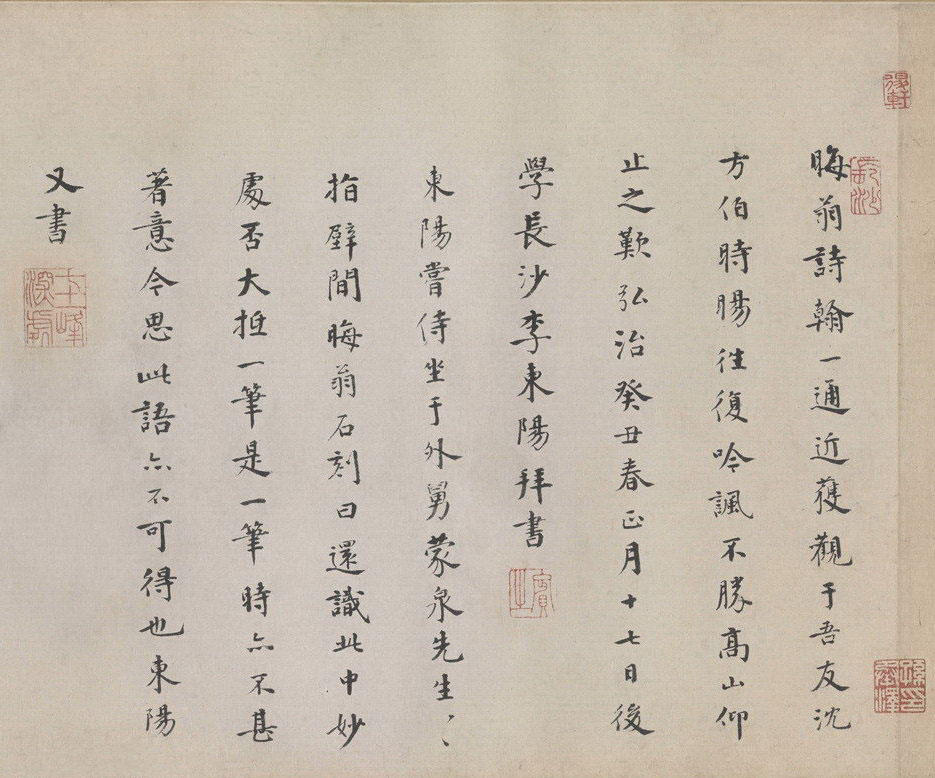 晦翁詩翰一通近獲觀于吾友沈
方伯時暘往復吟諷不勝高山仰
止之歎弘治癸丑春正月十七日後
學長沙李東陽拜書
東陽嘗侍坐于外舅蒙泉先生、、
指壁間晦翁石刻曰還識此中妙
處否大抵一筆是一筆時亦不甚
著意今思此語亦不可得也東陽
又書
長沙
賓之